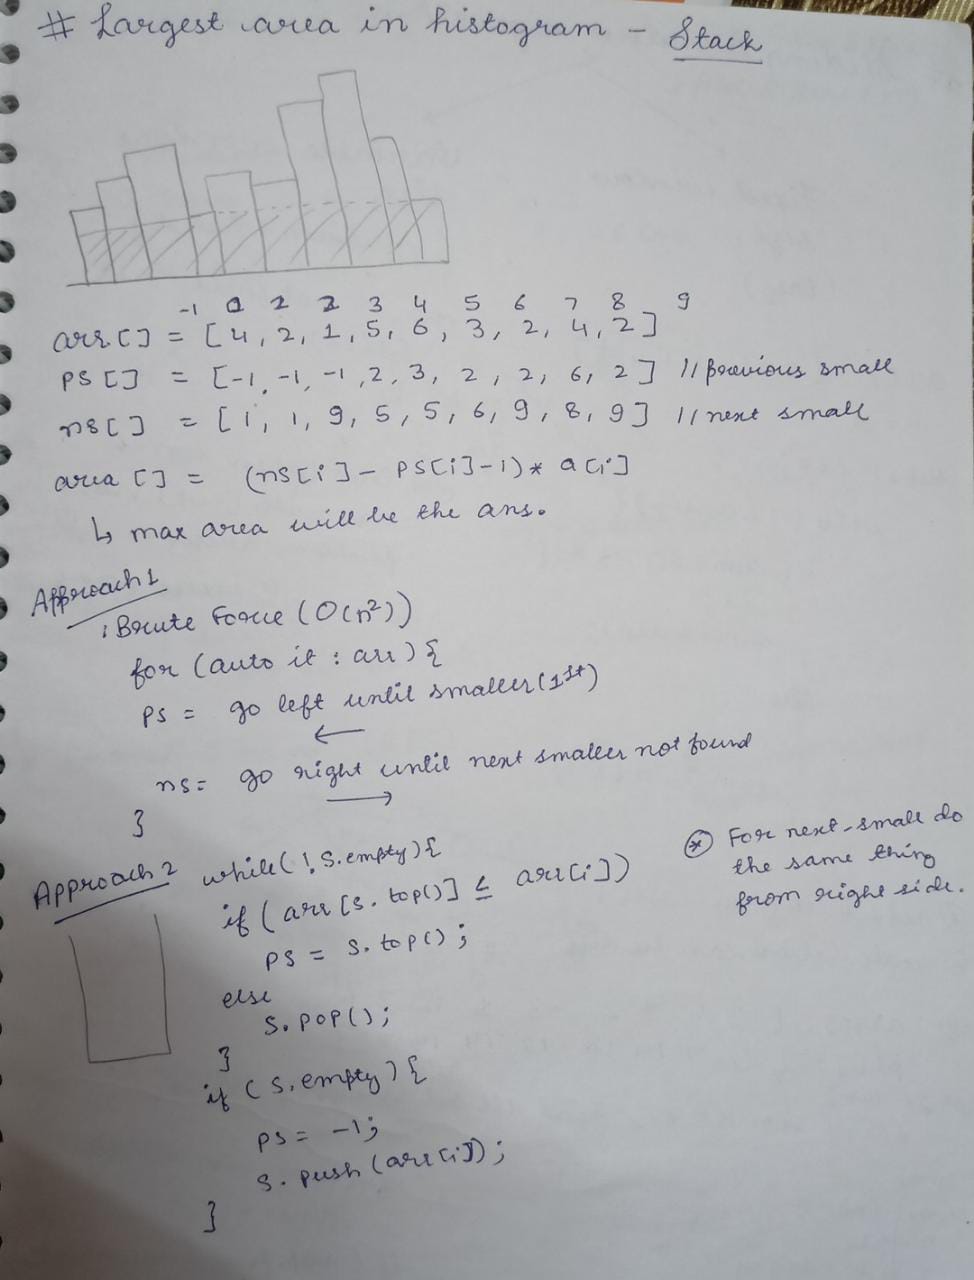 # Largest area in histogram - Stack
-1 0 1 2 3 4 5 6 7 8 9
arr[] = [4, 2, 1, 5, 6, 3, 2, 4, 2]
PS[] = [-1, -1, -1, 2, 3, 2, 2, 6, 2] // previous small
ns[] = [1, 1, 9, 5, 5, 6, 9, 8, 9] // next small
area [] = (ns[i] - PS[i]-1)* a[i]
↳ max area will be the ans.
Approach 1
: Brute Force (O(n²))
for (auto it : arr) {
PS = go left until smaller (1st)
←
ns = go right until next smaller not found
→
}
Approach 2
while( !S.empty) {
if ( arr [s. top()] ≤ arr[i])
PS = S. top();
else
S. pop();
}
if ( S. empty) {
PS = -1;
S. push (arr[i]);
}
* For next-small do
the same thing
from right side.